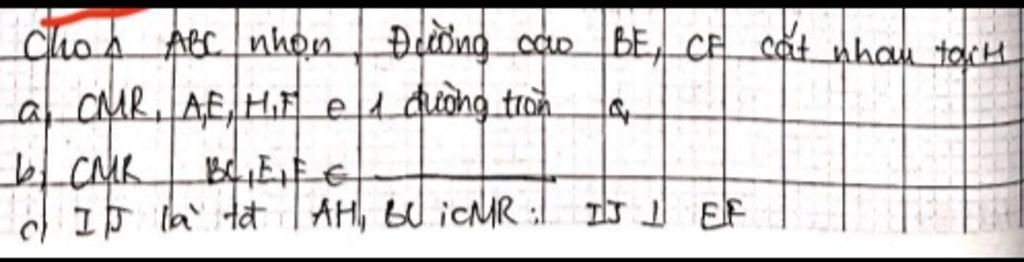 Cho Δ ABC nhọn, Đường cao BE, CF cắt nhau tại H
a, CMR, A,E, H,F e 1 đường tròn
b, CMR B,C,E,F ∈
c) I,J là tđ AH, BC ; CMR: IJ ⊥ EF